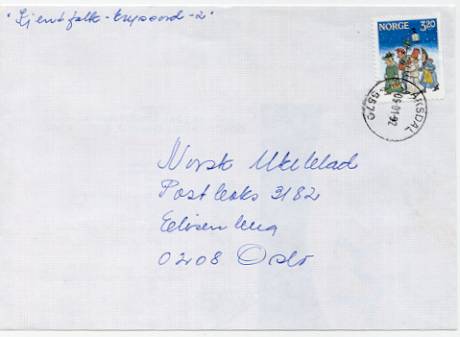 "Kjent folk-kryssord-2"
NORGE 3,20
AKSDAL
-5570
05-01-92
Norsk Ukeblad
Postboks 3182
Elisenberg
0208 Oslo